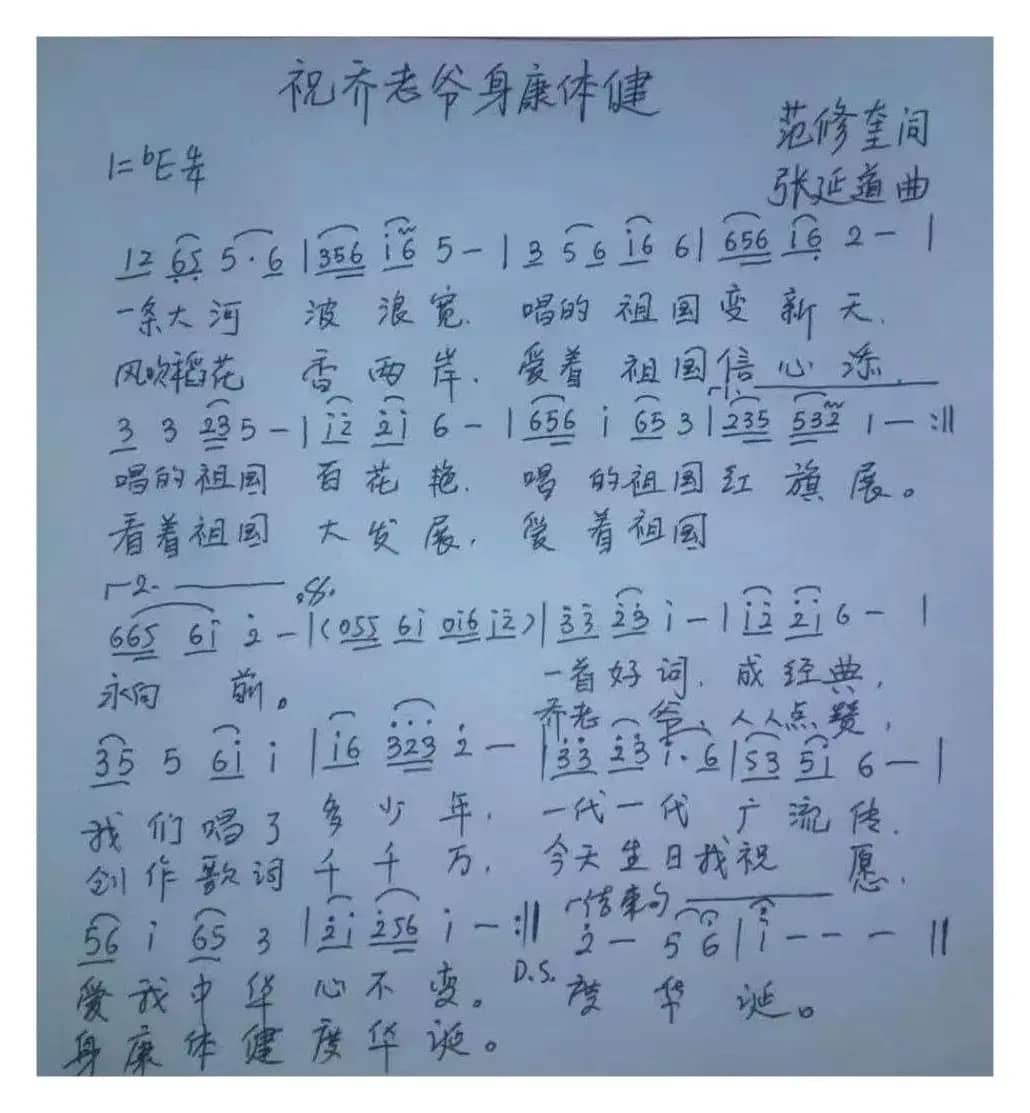 祝乔老爷身康体健
范修奎词
1=♭E 4/4
张延道曲
12 65 5·6 | 356 i6 5 - | 3 56 i6 6 | 656 i6 2 - |
一条大河 波浪宽. 唱的祖国变新天.
风吹稻花 香两岸. 爱着祖国信心添.
3 3 23 5 - | i2 2i 6 - | 656 i 65 3 | 235 532 1 - :||
唱的祖国 百花艳. 唱的祖国红旗展。
看着祖国 大发展. 爱着祖国
2.
665 6i 2 - | (055 6i 0i6 i2) | 33 23 i - | i2 2i 6 - |
永向前。 一首好词. 成经典,
乔老爷, 人人点赞,
35 5 6i i | i6 323 2 - | 33 23 i·6 | 53 5i 6 - |
我们唱了多少年. 一代一代广流传.
创作歌词千千万. 今天生日我祝愿,
结束句
56 i 65 3 | 2i 256 i - :|| 2 - 5 6 | i - - - ||
D.S.
爱我中华心不变。 度华诞。
身康体健度华诞。